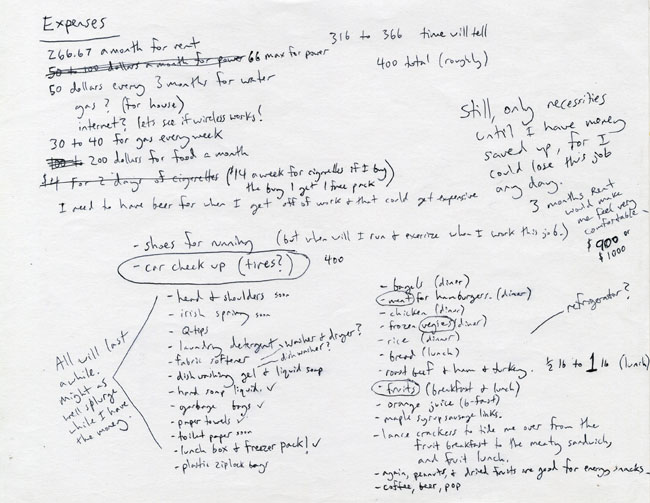 Expenses
266.67 a month for rent
316 to 366 time will tell
50 to 100 dollars a month for power 66 max for power
400 total (roughly)
50 dollars every 3 months for water
gas? (for house)
internet? lets see if wireless works!
30 to 40 for gas every week
200 dollars for food a month
$4 for 2 days of cigerettes ($14 a week for cigerettes if I buy)
the buy 1 get 1 free pack)
I need to have beer for when I get off of work & that could get expensive
Still, only necessities
until I have money
saved up, for I
could lose this job
any day.
3 months rent
would make
me feel very
comfortable
$900 or
$1000
- shoes for running (but when will I run & exercize when I work this job.)
- car check up (tires?) 400
All will last
awhile.
might as
well splurge
while I have
the money
- head & shoulders soon
- irish spring soon
- Q-tops
- laundry detergent washer & dryer?
- fabric softener dishwasher?
- dishwashing gel & liquid soap
- hand soap liquid. ✓
- garbage bags ✓
- paper towels ✓
- toilet paper soon
- lunch box & freezer pack! ✓
- plastic ziplock bags
- bagels (diner)
- meat for hamburgers. (dinner)
- chicken (diner)
- frozen vegies (diner)
- rice (dinner)
- bread (lunch)
- roast beef & ham & turkey. ½ lb to 1 lb (lunch)
refrigerator?
- fruits (breakfast & lunch)
- orange juice (b-fast)
- maple syrup sausage links.
- lance crackers to tide me over from the
fruit breakfast to the meaty sandwich,
and fruit lunch.
- again, peanuts, & dried fruits are good for energy snacks
- coffee, beer, pop